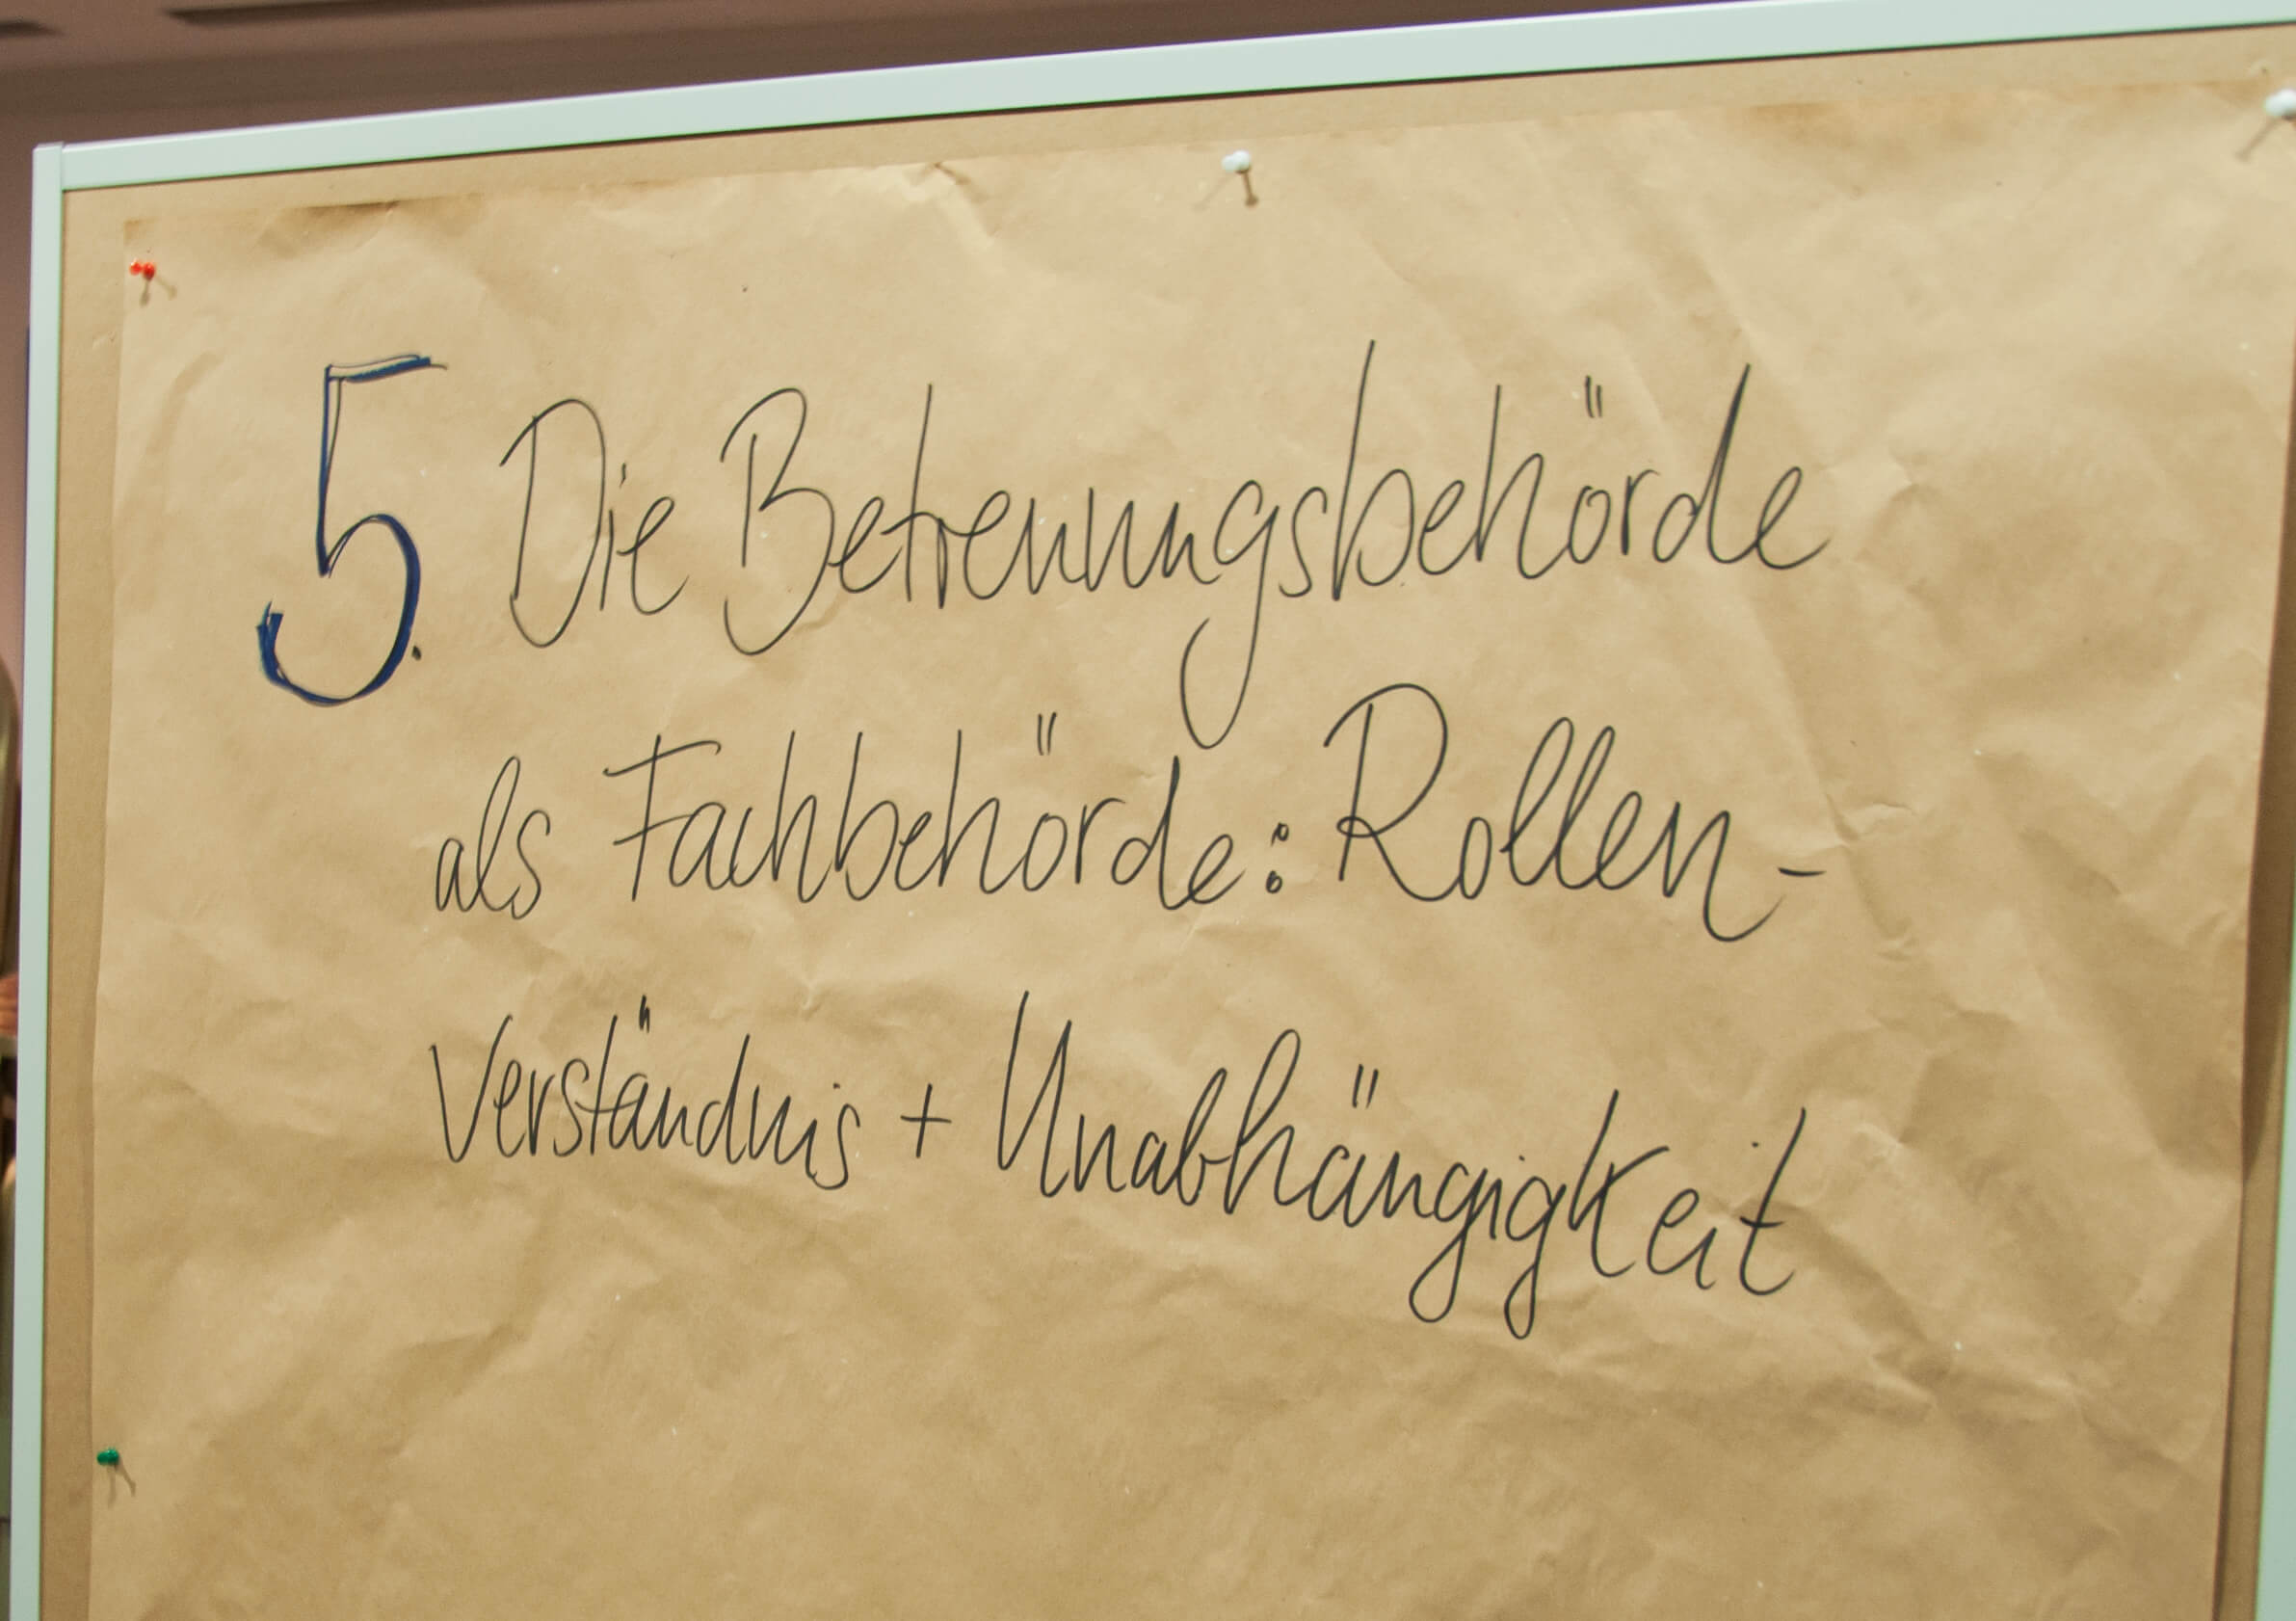 5. Die Betreuungsbehörde
als Fachbehörde: Rollen-
Verständnis + Unabhängigkeit